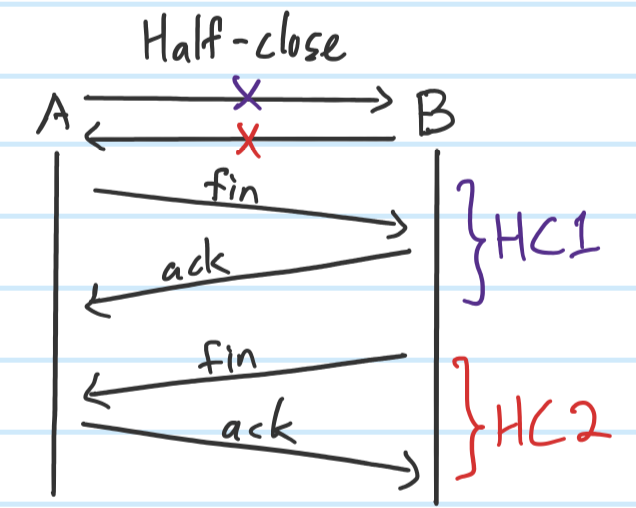 Half-close
A B
fin
ack
HC1
fin
ack
HC2